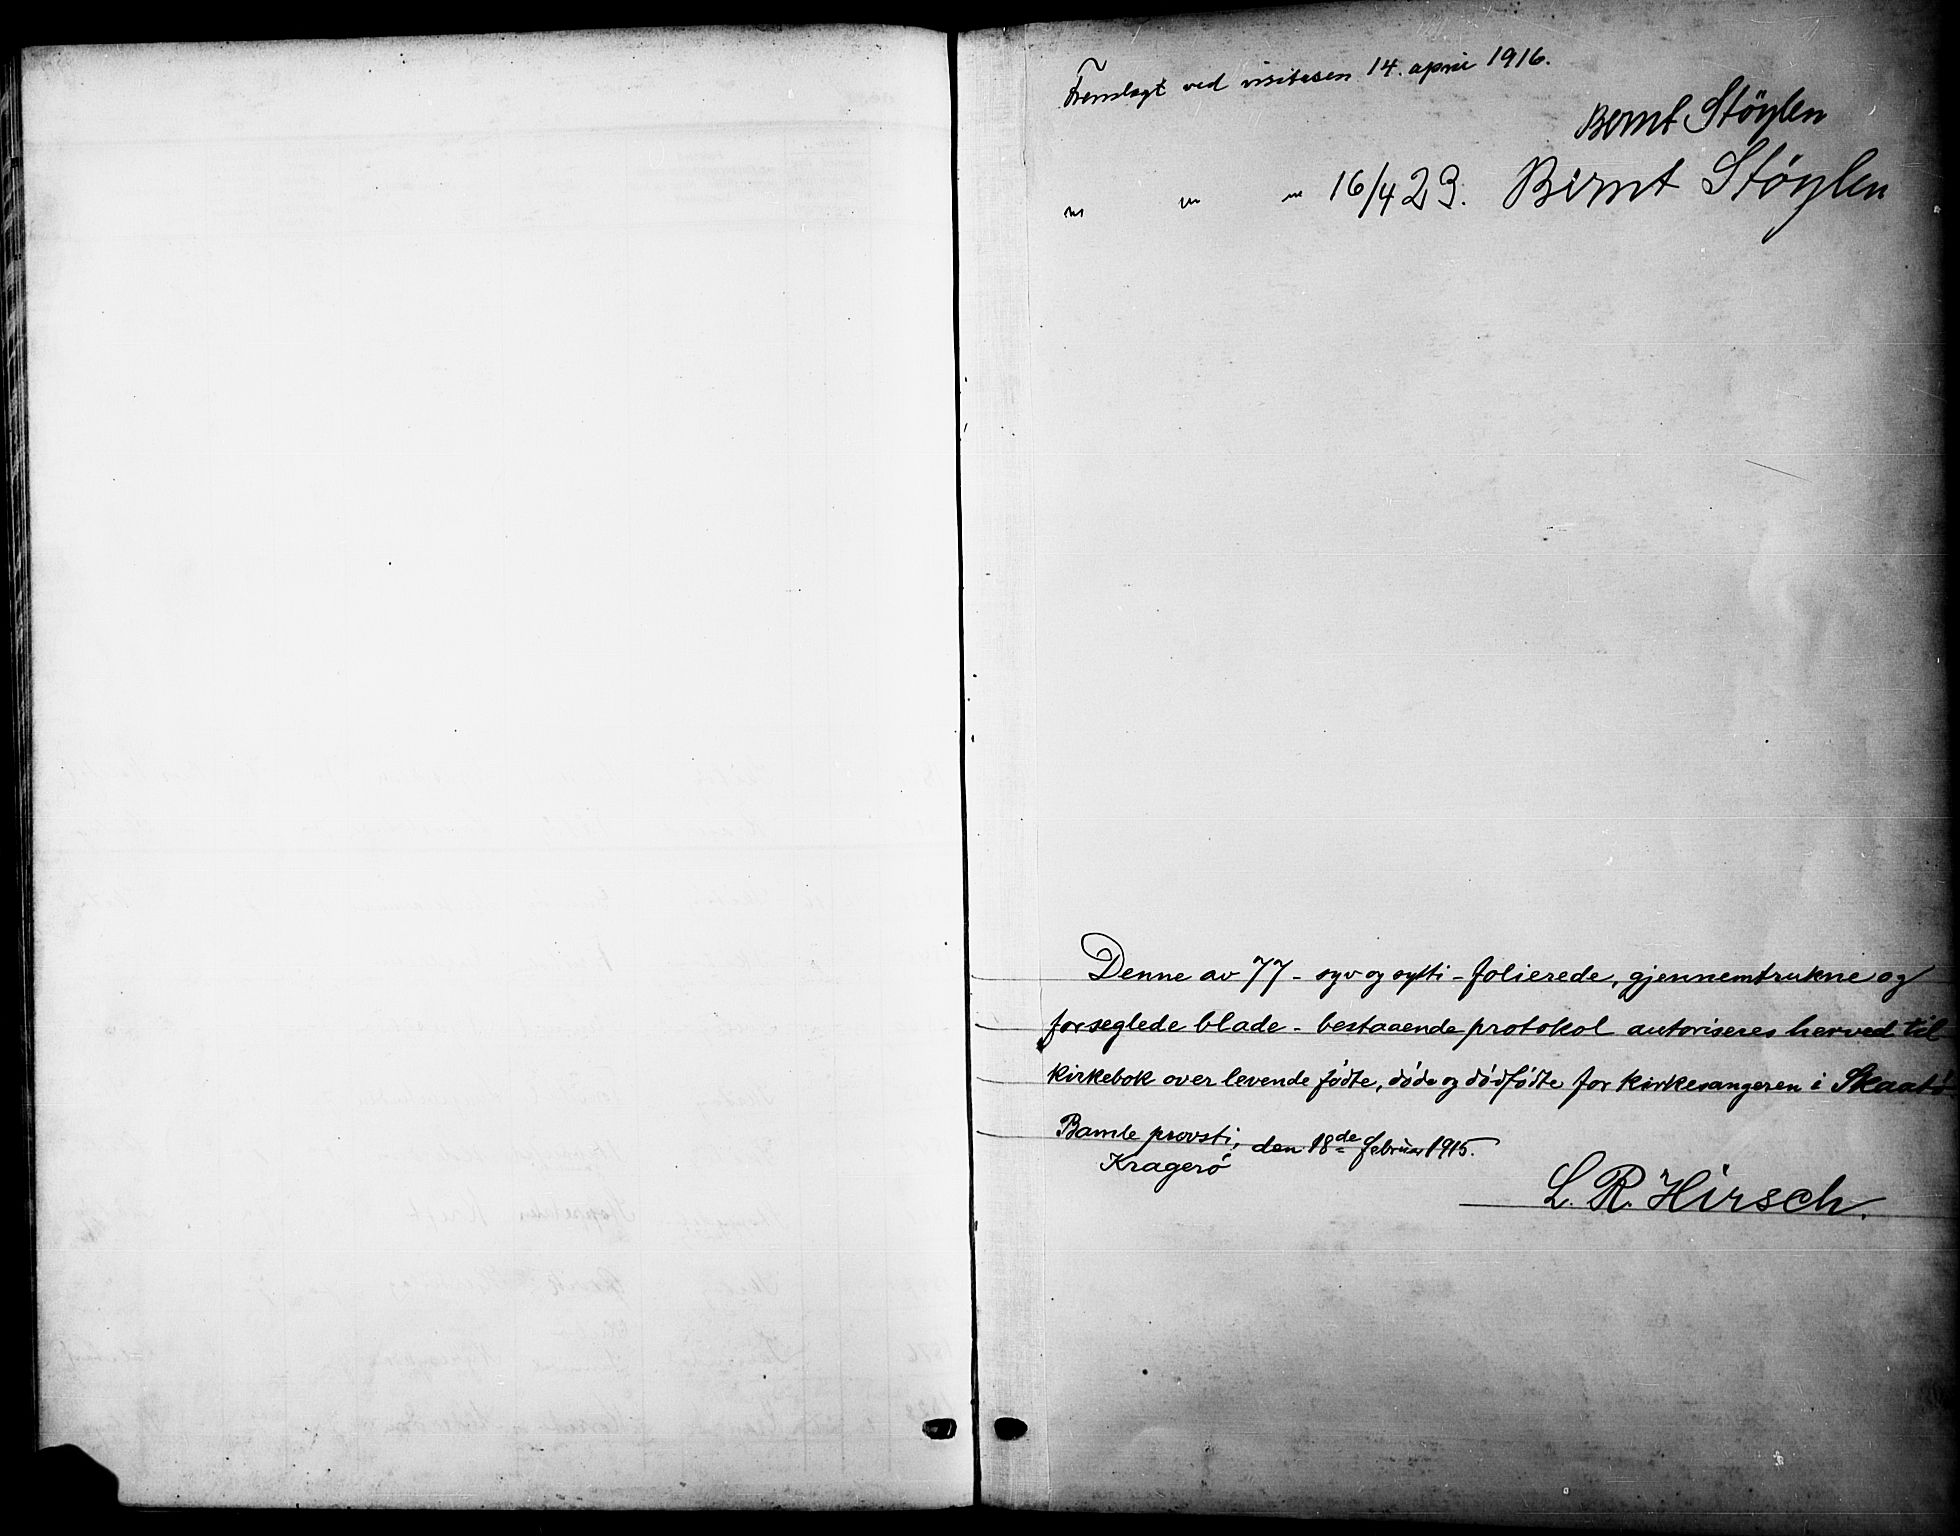 Fremlagt ved visitasen 14. april 1916.
Bernt Støylen
" " " 16/4 23. Bernt Støylen
Denne av 77 - syv og sytti - folierede, gjennemtrukne og
forseglede blade - bestaaende protokol autoriseres herved til
kirkebok over levende fødte, døde og dødfødte for kirkesangeren i Skaatø
Bamle provsti, den 18de februar 1915.
Kragerø
L. R. Hirsch.